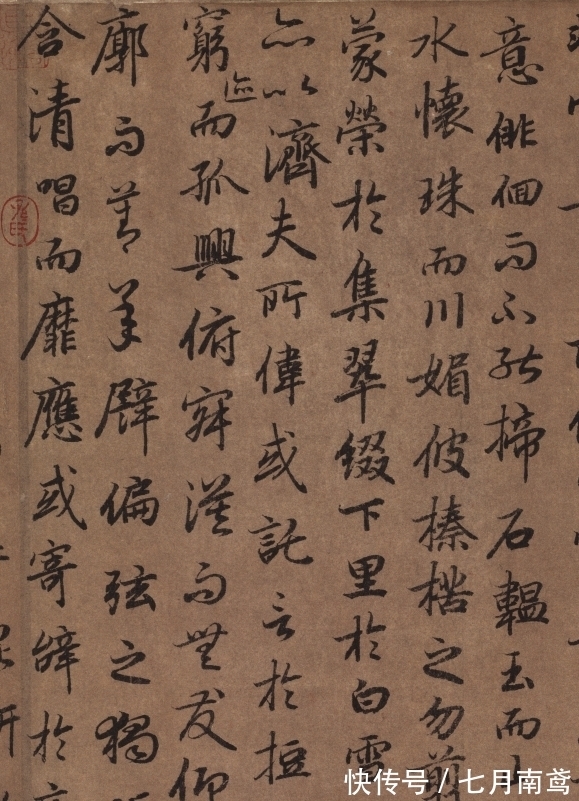 意俳佪而不能揥石韞玉而山
水懷珠而川媚彼榛楛之勿翦
蒙榮於集翠綴下里於白雪
亦以濟夫所偉或託言於短
窮迹而孤興俯寂漠而無友仰
廓而莫承譬偏弦之獨
含清唱而靡應或寄辭於
快传号/七月南鸢